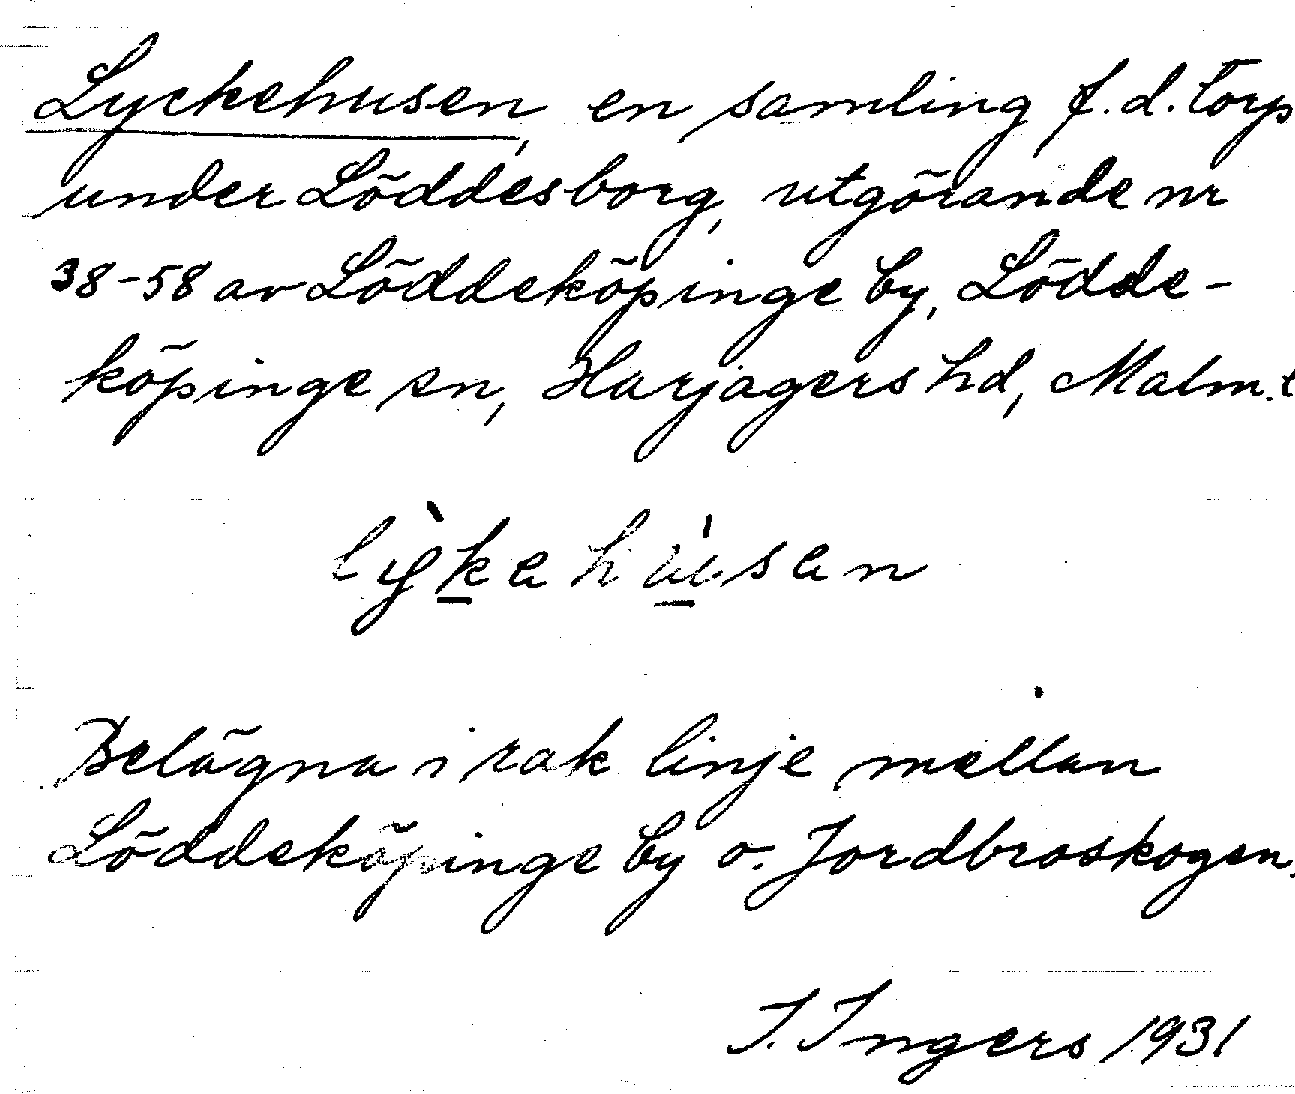 Lyckehusen, en samling f.d. torp
under Löddesborg, utgörande nr
38-58 av Löddeköpinge by, Lödde-
köpinge sn, Harjagers hd, Malm.
lỳkehúsen
Belägna i rak linje mellan
Löddeköpinge by o. Jordbroskogen.
I. Ingers 1931